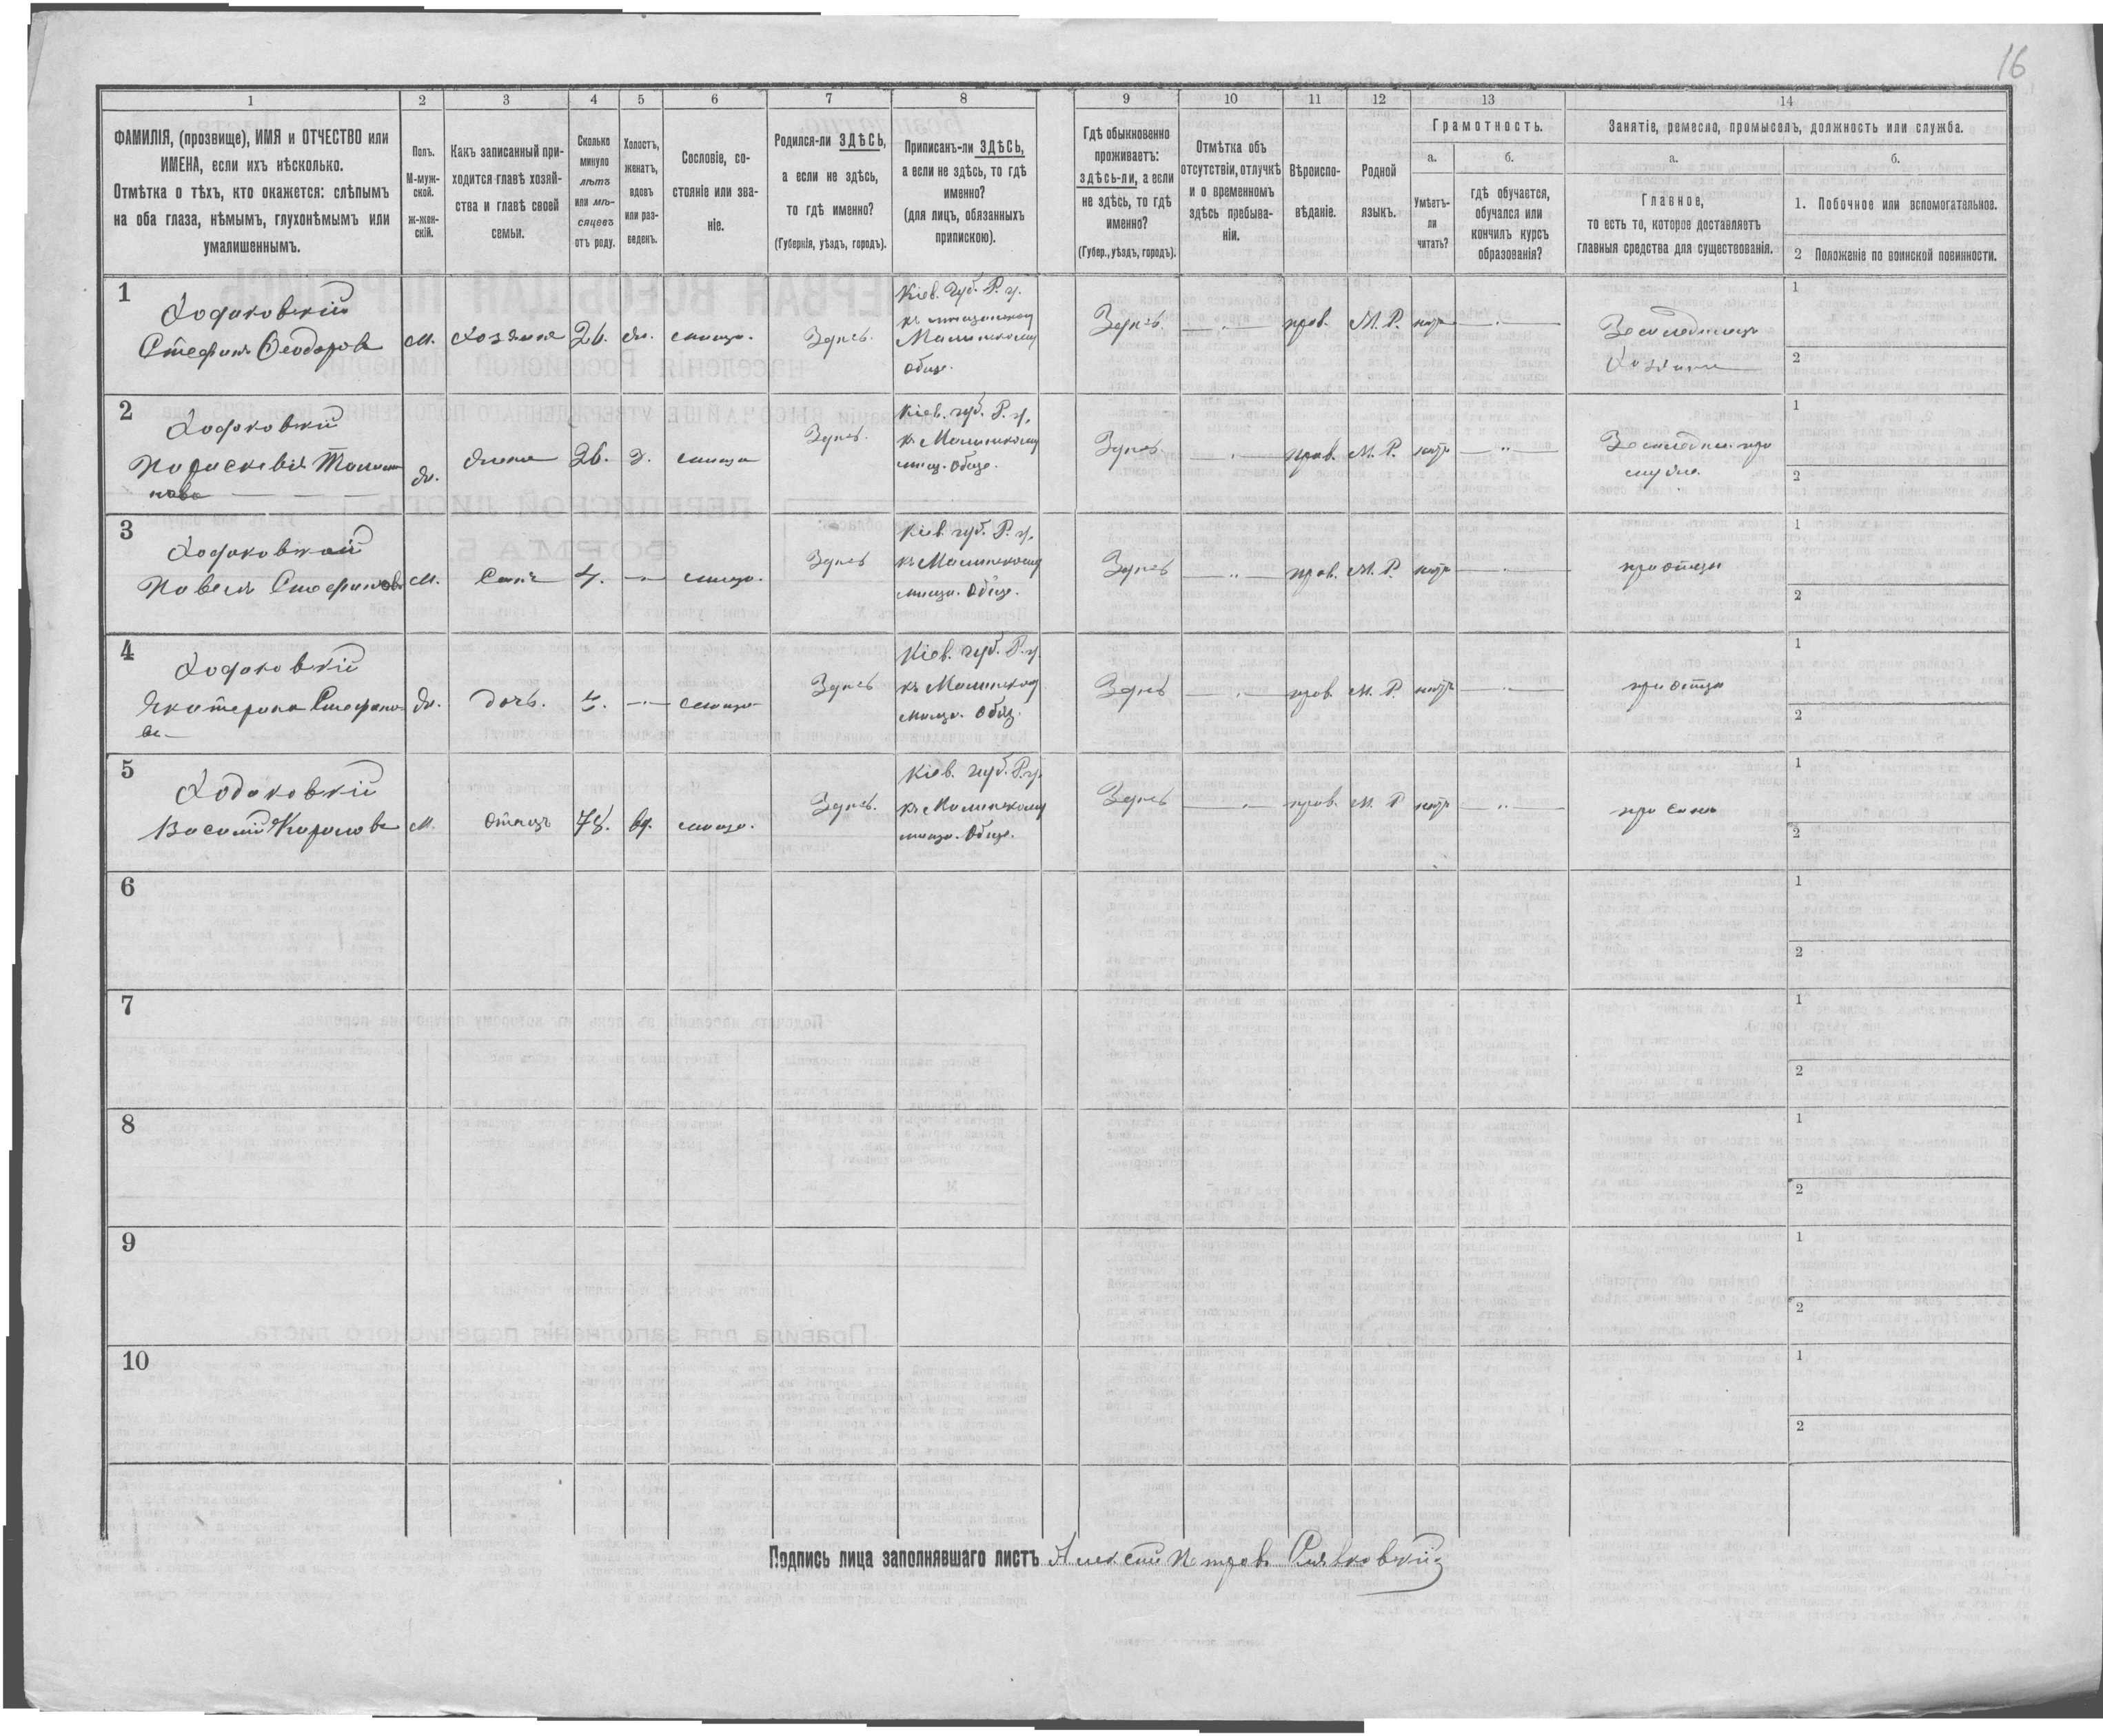 16
1 2 3 4 5 6 7 8 9 10 11 12 13 14
ФАМИЛІЯ, (прозвище), ИМЯ и ОТЧЕСТВО или
ИМЕНА, если ихъ нѣсколько.
Отмѣтка о тѣхъ, кто окажется: слѣпымъ
на оба глаза, нѣмымъ, глухонѣмымъ или
умалишеннымъ.
Полъ.
М-муж-
ской.
ж-жен-
скій.
Какъ записанный при-
ходится главѣ хозяй-
ства и главѣ своей
семьи.
Сколько
минуло
лѣтъ
или мѣ-
сяцевъ
отъ роду.
Холостъ,
женатъ,
вдовъ
или раз-
веденъ.
Сословіе, со-
стояніе или зва-
ніе.
Родился-ли ЗДѢСЬ,
а если не здѣсь,
то гдѣ именно?
(Губернія, уѣздъ, городъ).
Приписанъ-ли ЗДѢСЬ,
а если не здѣсь, то гдѣ
именно?
(для лицъ, обязанныхъ
припискою).
Гдѣ обыкновенно
проживаетъ:
здѣсь-ли, а если
не здѣсь, то гдѣ
именно?
(Губер., уѣздъ, городъ).
Отмѣтка объ
отсутствіи, отлучкѣ
и о временномъ
здѣсь пребыва-
ніи.
Вѣроиспо-
вѣданіе.
Родной
языкъ.
Грамотность.
а.
Умѣетъ-
ли
читать?
б.
гдѣ обучается,
обучался или
кончилъ курсъ
образованія?
Занятіе, ремесло, промыселъ, должность или служба.
а.
Главное,
то есть то, которое доставляетъ
главныя средства для существованія.
б.
1. Побочное или вспомогательное.
2 Положеніе по воинской повинности.
1
Ходаковскій
Стефанъ Ѳеодоров
м.
хозяинъ
26.
ж.
мѣщ.
Здесь.
Кіев. губ. Р. у.
къ мещанском
Малинскому
общ.
Здесь.
прав.
М. Р.
нетъ
Земледелецъ
Хозяинъ
1
2
2
Ходаковскій
Параскевія
ж.
жена
26.
з.
мѣща
Здесь.
Кіев. губ. Р. у.
къ Малинскому
мещ. общ.
Здесь
прав.
М. Р.
нетъ
Земледел. при
мужѣ.
1
2
3
Ходаковскій
Павелъ Стефанов
м.
Сынъ
4.
мещ.
Здесь
Кіев. губ. Р. у.
къ Малинскому
меща. общ.
Здесь
прав.
М. Р.
нетъ
при отцы
1
2
4
Ходаковскій
Екатерина Стефано
ва
ж.
дочь.
мещ.
Здесь
Кіев. губ. Р. у.
къ Малинском
меща. общ.
Здесь
прав.
М. Р.
нетъ
при отцы
1
2
5
Ходаковскій
м.
отецъ
78.
вд.
мещ.
Здесь.
Кіев. губ. Р. у.
къ Малинскому
меща. общ.
Здесь
прав.
М. Р
нетъ
при сыне
1
2
6
1
2
7
1
2
8
1
2
9
1
2
10
1
2
Подпись лица заполнявшаго листъ Алексей Петров